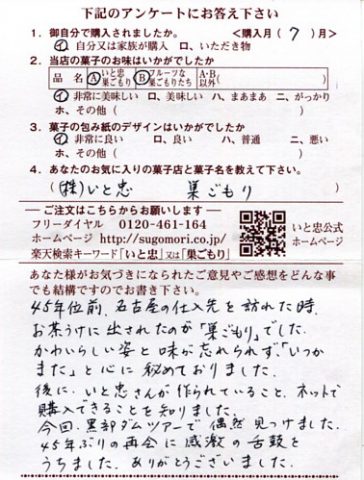 下記のアンケートにお答え下さい
1．御自分で購入されましたか。　＜購入月（ 7 ）月＞
イ、自分又は家族が購入　ロ、いただき物
2．当店の菓子のお味はいかがでしたか
品 名　A いと忠 巣ごもり　B フルーツな 巣ごもりたち　A・B 以外（　　　）
イ、非常に美味しい　ロ、美味しい　ハ、まあまあ　ニ、がっかり
ホ、その他（　　　）
3．菓子の包み紙のデザインはいかがでしたか
イ、非常に良い　ロ、良い　ハ、普通　ニ、悪い
ホ、その他（　　　）
4．あなたのお気に入りの菓子店と菓子名を教えて下さい。
（（株）いと忠　　巣ごもり　　）
― ご注文はこちらからお願いします ―
フリーダイヤル　0120-461-164
ホームページ http://sugomori.co.jp/
楽天検索キーワード「いと忠」又は「巣ごもり」
いと忠公式
ホームページ
あなた様がお気づきになられたご意見やご感想をどんな事
でも結構ですのでお書き下さい。
45年位前、名古屋の仕入先を訪れた時、
お茶うけに出されたのが「巣ごもり」でした。
かわいらしい姿と味が忘れられず、「いつか
また」と心に秘めておりました。
後に、いと忠さんが作られていること、ネットで
購入できることを知りました。
今回、黒部ダムツアーで偶然見つけました。
45年ぶりの再会に感激の舌鼓を
うちました。ありがとうございました。